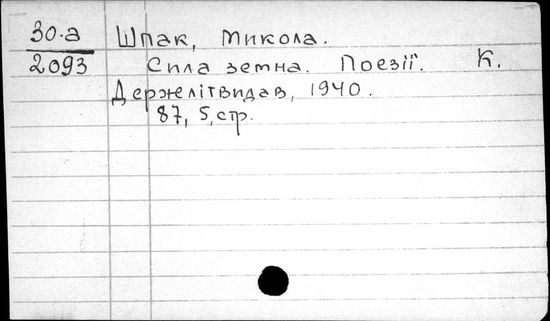 30.а Шпак, Микола.
2093 Сила земна. Поезії. К.
Держлітвидав, 1940.
87, 5, стр.